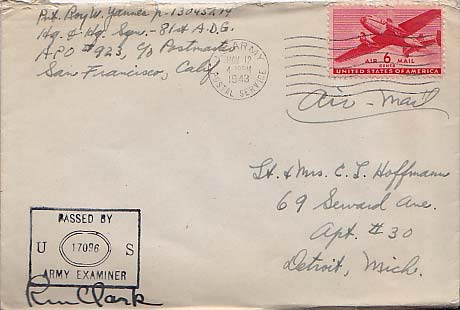 Pvt. Roy W. Yannes Jr - 13045274
Hq. & Hq. Sqn. - 81st A.D.G.
A.P.O #923, c/o Postmaster
San Francisco, Calif
U.S. ARMY
NOV 12
1943
POSTAL SERVICE
AIR 6 MAIL
CENTS
UNITED STATES OF AMERICA
Air-Mail
Lt. & Mrs. C. L. Hoffmann
69 Seward Ave.
Apt. #30
Detroit, Mich.
PASSED BY
U 17096 S
ARMY EXAMINER
Clark